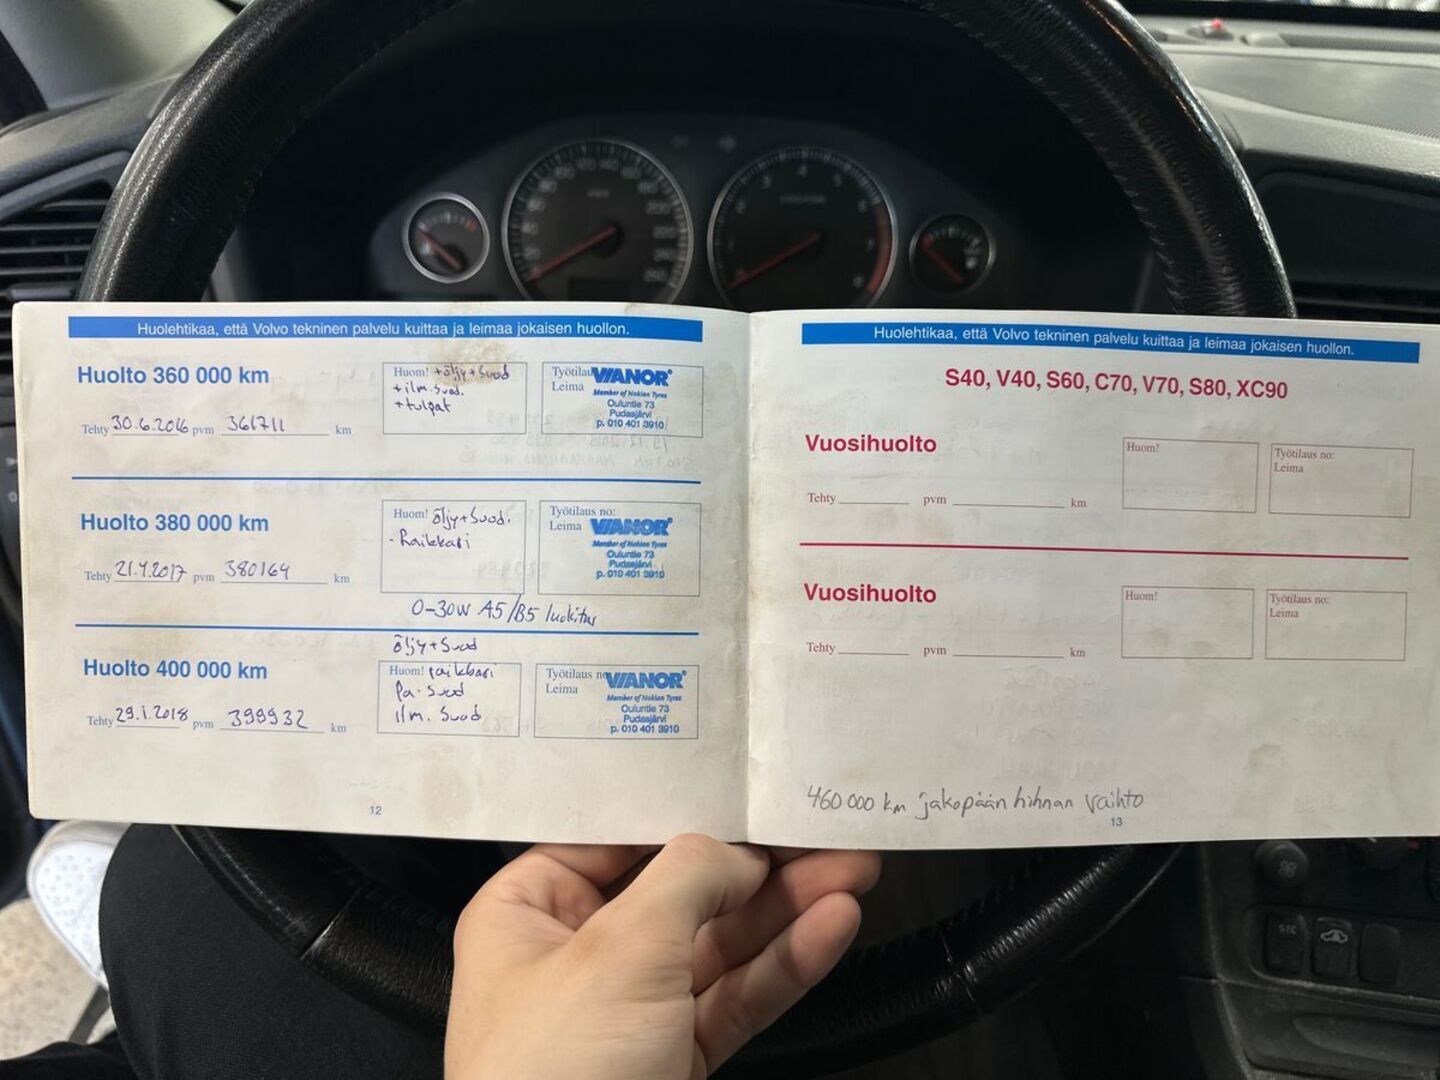 Huolehtikaa, että Volvo tekninen palvelu kuittaa ja leimaa jokaisen huollon.
Huolto 360 000 km
Huom! +öljy+Suod
+ilm.Suod.
+tulpat
Työtilau
Leima
VIANOR
Member of Nokian Tyres
Ouluntie 73
Pudasjärvi
p. 010 401 3910
Tehty 30.6.2016 pvm 361711 km
Huolto 380 000 km
Huom! öljy+Suod.
-Raikkari
Työtilaus no:
Leima
VIANOR
Member of Nokian Tyres
Ouluntie 73
Pudasjärvi
p. 010 401 3910
Tehty 21.4.2017 pvm 380164 km
0-30W A5/B5 luokitus
öljy+Suod
Huolto 400 000 km
Huom! raikkari
Pa-Suod
ilm. Suod
Työtilaus n
Leima
VIANOR
Member of Nokian Tyres
Ouluntie 73
Pudasjärvi
p. 010 401 3910
Tehty 29.1.2018 pvm 399932 km
12
Huolehtikaa, että Volvo tekninen palvelu kuittaa ja leimaa jokaisen huollon.
S40, V40, S60, C70, V70, S80, XC90
Vuosihuolto
Huom!
Työtilaus no:
Leima
Tehty pvm km
Vuosihuolto
Huom!
Työtilaus no:
Leima
Tehty pvm km
460 000 km jakopään hihnan vaihto
13
STC